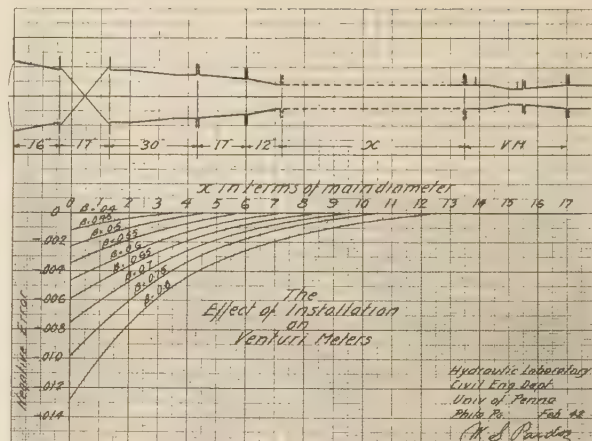 16" 17" 30" 17" 12" x V.M.
x in terms of main diameter
0 1 2 3 4 5 6 7 8 9 10 11 12 13 14 15 16 17
0
.002
.004
.006
.008
.010
.012
.014
Negative Error
B=0.4
B=0.45
B=0.5
B=0.55
B=0.6
B=0.65
B=0.7
B=0.75
B=0.8
The
Effect of Installation
on
Venturi Meters
Hydraulic Laboratory
Civil Eng Dept.
Univ of Penna
Phila Pa. Feb 42
W. S. Pardoe